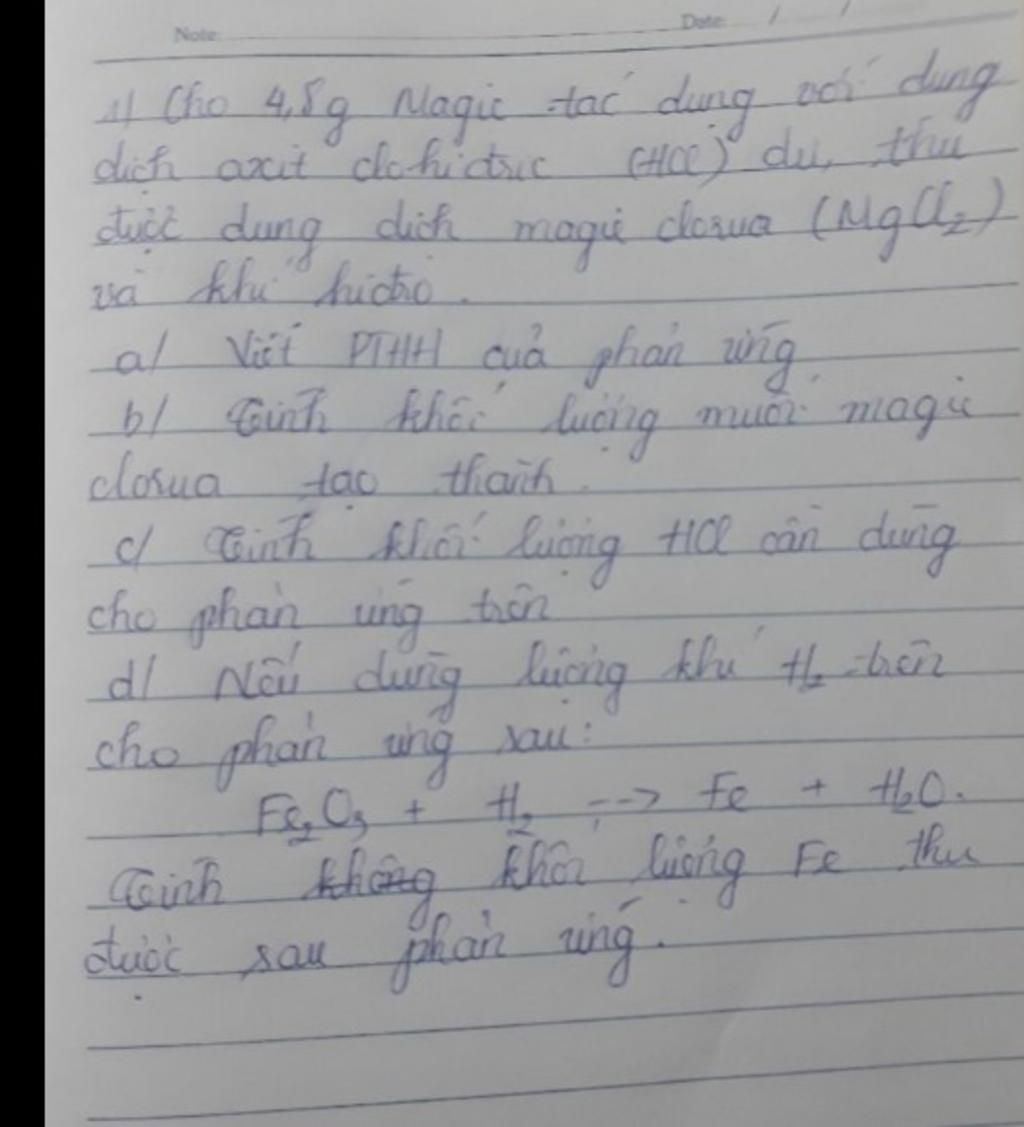 Note:
Date / /
1/ Cho 4,8g Magie tác dụng với dung
dịch axit clohiđric (HCl) dư, thu
được dung dịch magie clorua (MgCl₂)
và khí hiđro.
a/ Viết PTHH của phản ứng
b/ Tính khối lượng muối magie
clorua tạo thành.
c/ Tính khối lượng HCl cần dùng
cho phản ứng trên
d/ Nếu dùng lượng khí H₂ trên
cho phản ứng sau:
Fe₂O₃ + H₂ --> Fe + H₂O.
Tính không khối lượng Fe thu
được sau phản ứng.